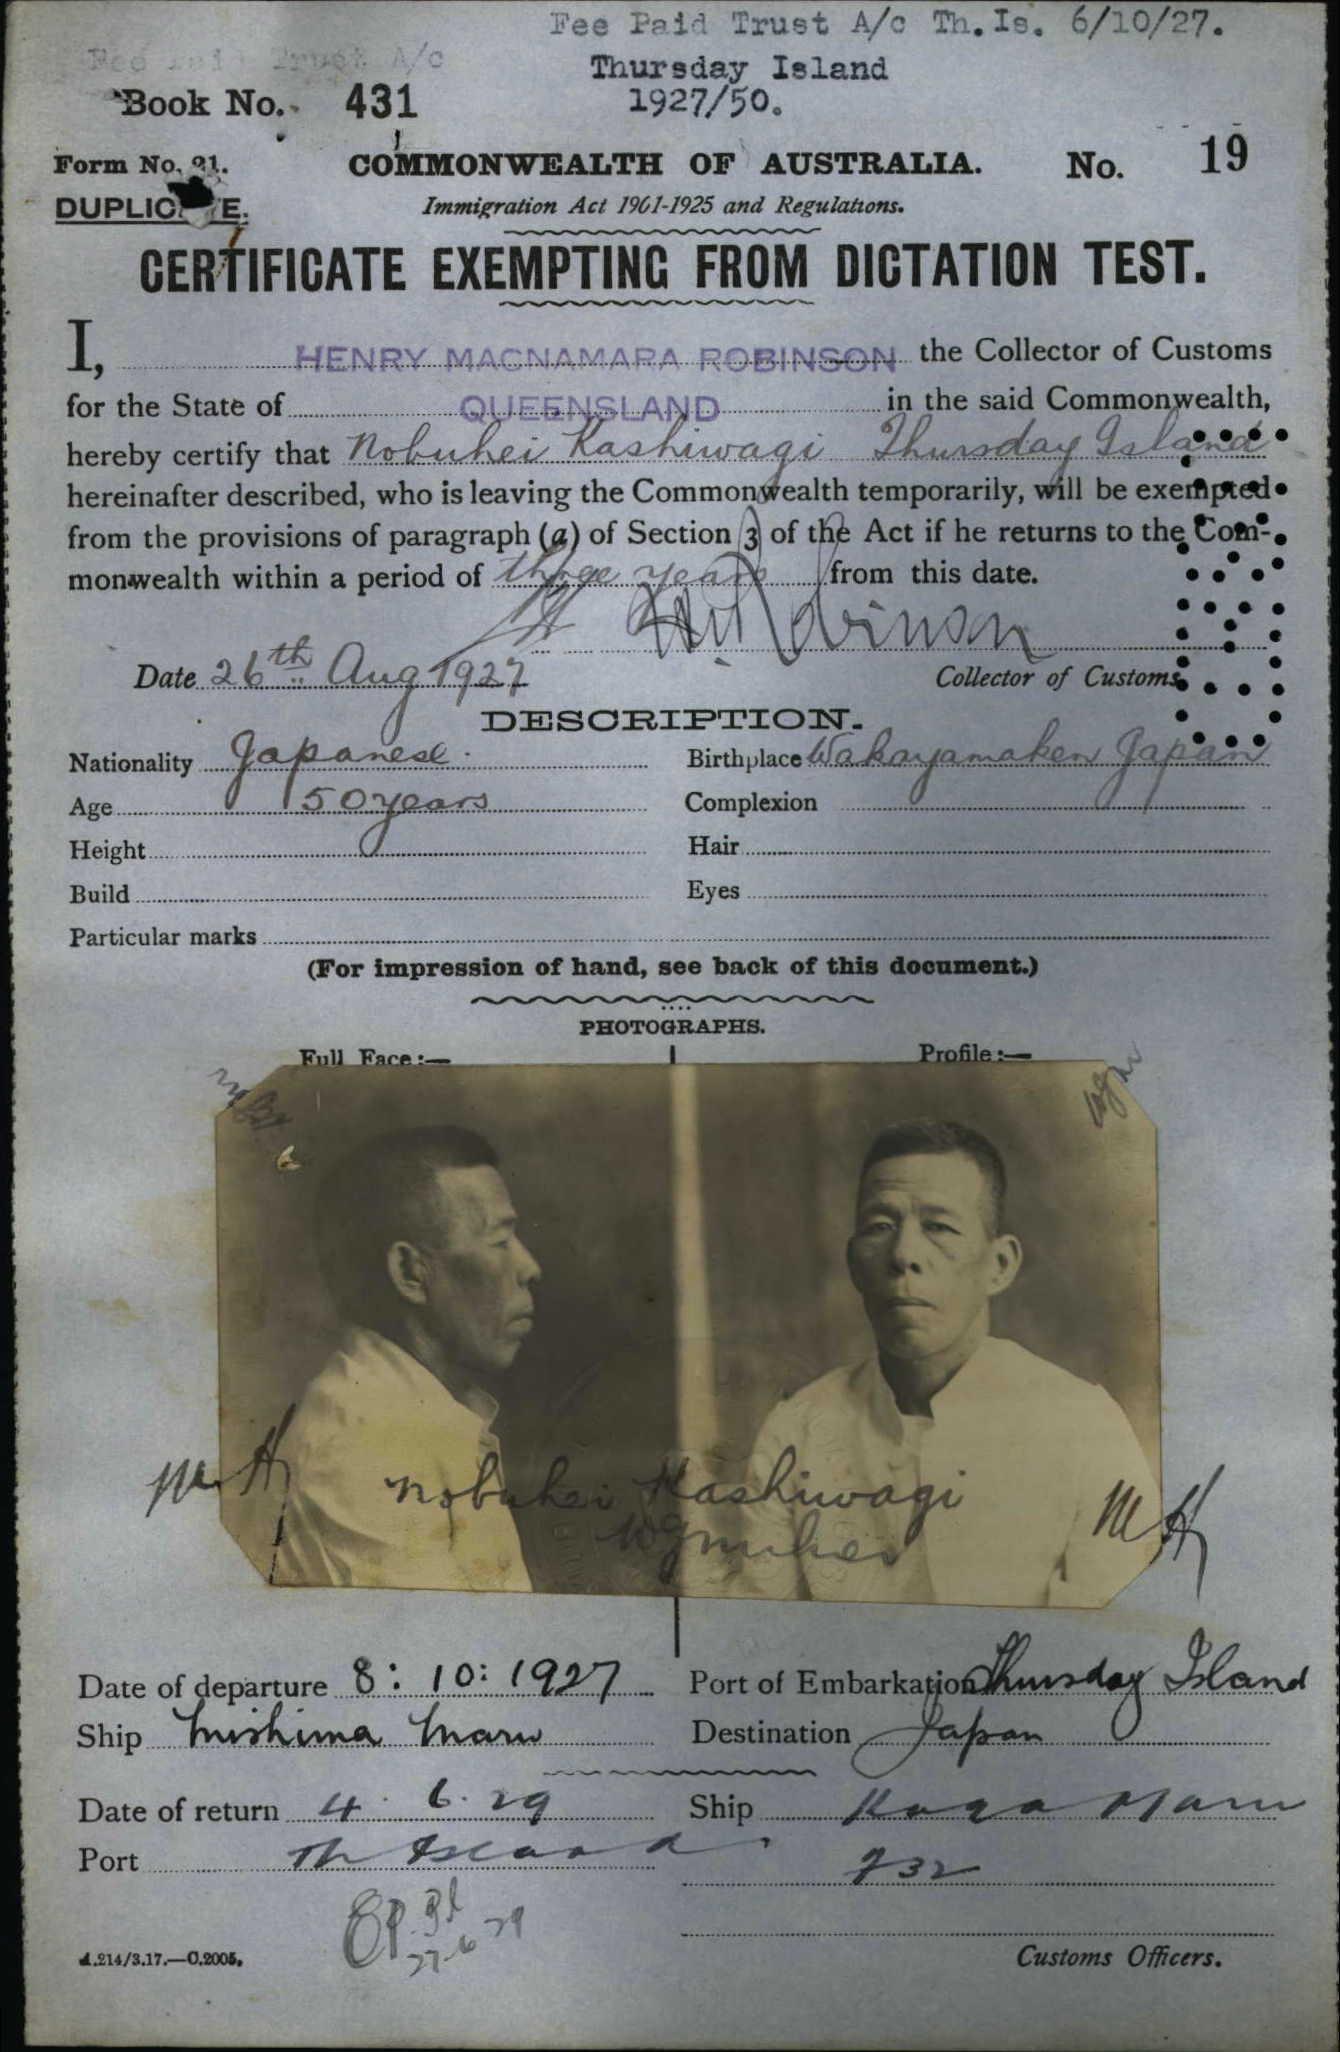 Fee Paid Trust A/c Th.Is. 6/10/27.
Fee Paid Trust A/c
Thursday Island
Book No. 431
1927/50.
Form No. 21.
COMMONWEALTH OF AUSTRALIA.
No. 19
DUPLICATE.
Immigration Act 1901-1925 and Regulations.
CERTIFICATE EXEMPTING FROM DICTATION TEST.
I, HENRY MACNAMARA ROBINSON the Collector of Customs
for the State of QUEENSLAND in the said Commonwealth,
hereby certify that Nobuhei Kashiwagi Thursday Island
hereinafter described, who is leaving the Commonwealth temporarily, will be exempted
from the provisions of paragraph (a) of Section 3 of the Act if he returns to the Com-
monwealth within a period of three years from this date.
Date 26th Aug 1927
Collector of Customs.
DESCRIPTION.
Nationality Japanese.
Birthplace Wakayamaken Japan
Age 50 years
Complexion
Height
Hair
Build
Eyes
Particular marks
(For impression of hand, see back of this document.)
PHOTOGRAPHS.
Full Face:—
Profile:—
Nobuhei Kashiwagi
Date of departure 8: 10: 1927
Port of Embarkation Thursday Island
Ship Mishima Maru
Destination Japan
Date of return 4. 6. 29
Ship Kaga Maru
Port Th Island
732
27-6-29
A.214/3.17.—C.2005.
Customs Officers.